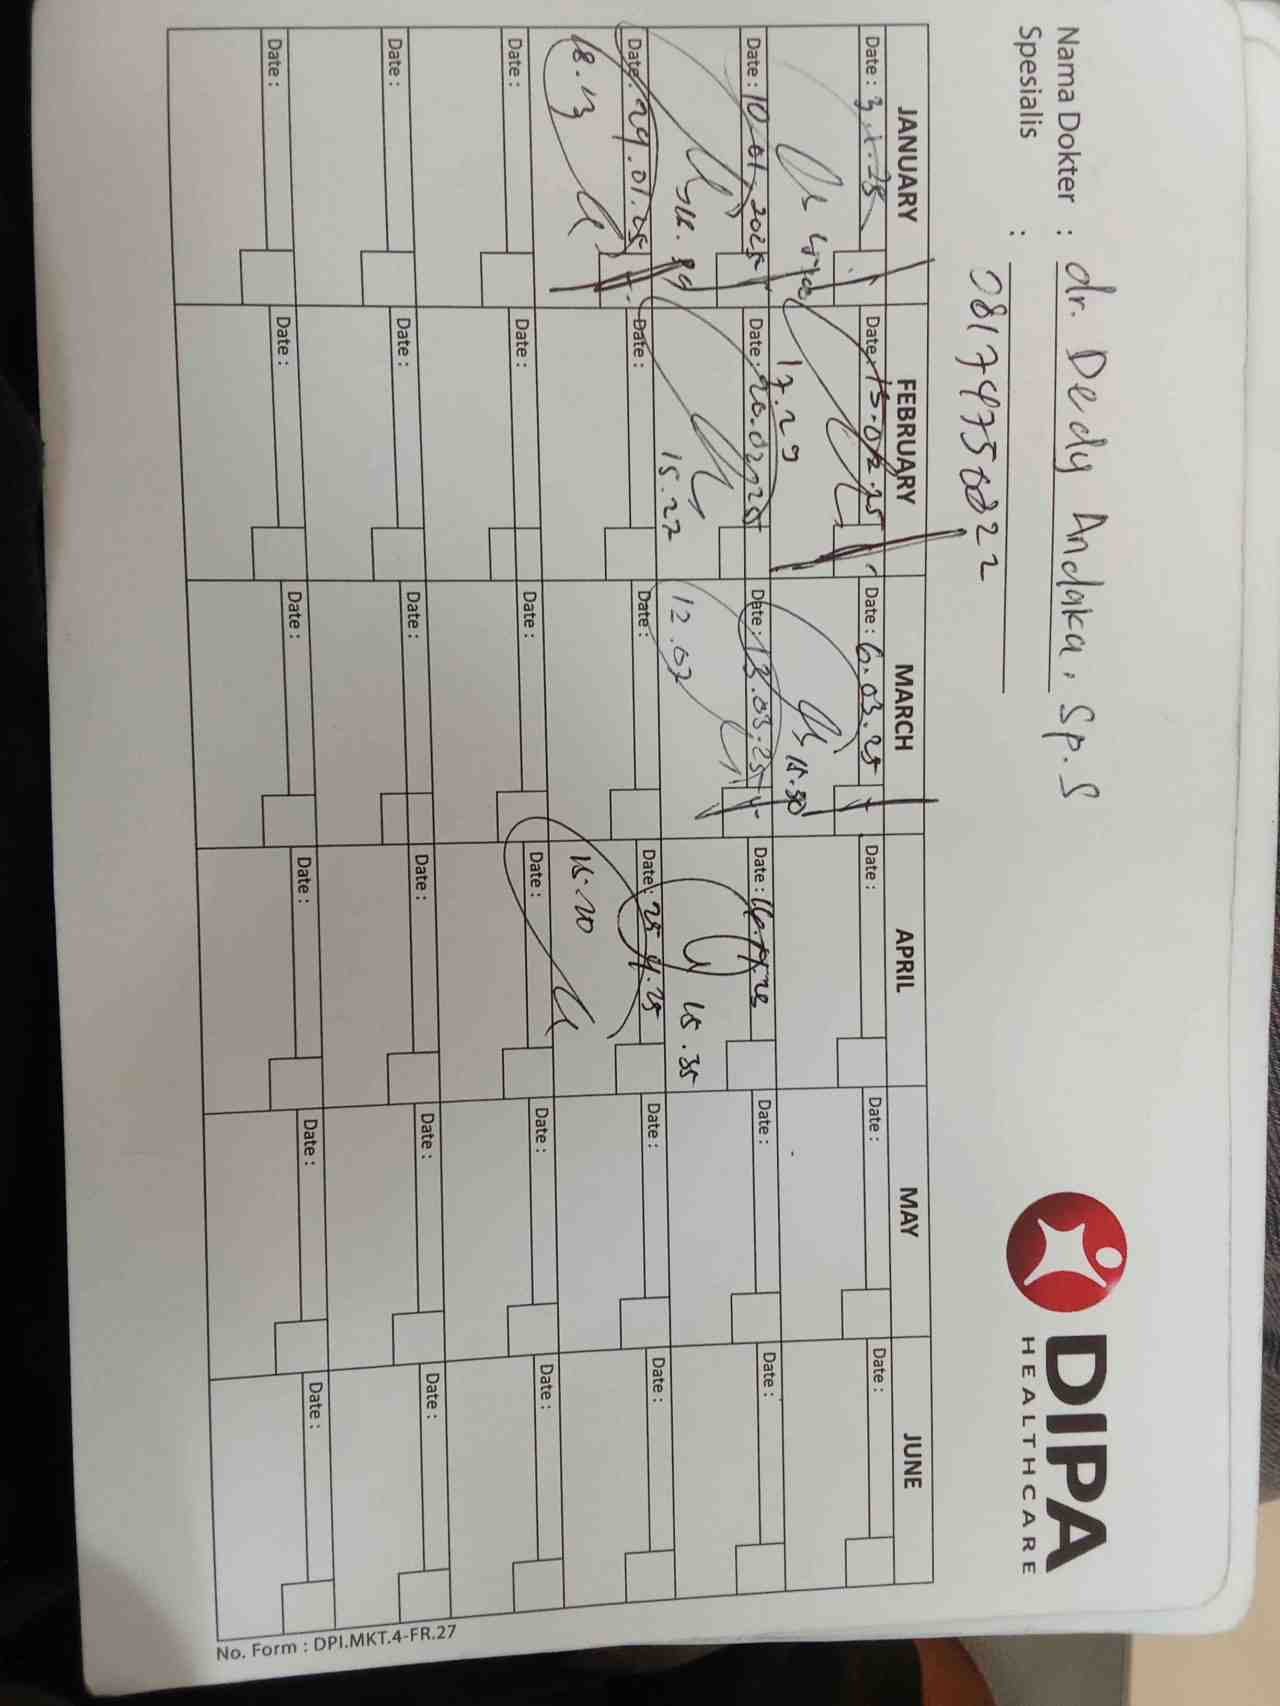 DIPA
HEALTHCARE
Nama Dokter : dr. Dedy Andaka, Sp.S
Spesialis :
JANUARY FEBRUARY MARCH APRIL MAY JUNE
Date : Date : 13.02.25 Date : 6.03.25 Date : Date : Date :
17.29 15.50
Date : 10-01-2025 Date : 20.02.25 Date : 13.03.25 Date : Date : Date :
15.27 12.07 15.35
Date : 29.01.25 Date : Date : Date : 25.4.25 Date : Date :
18.13 15.20
Date : Date : Date : Date : Date : Date :
Date : Date : Date : Date : Date : Date :
Date : Date : Date : Date : Date : Date :
No. Form : DPI.MKT.4-FR.27